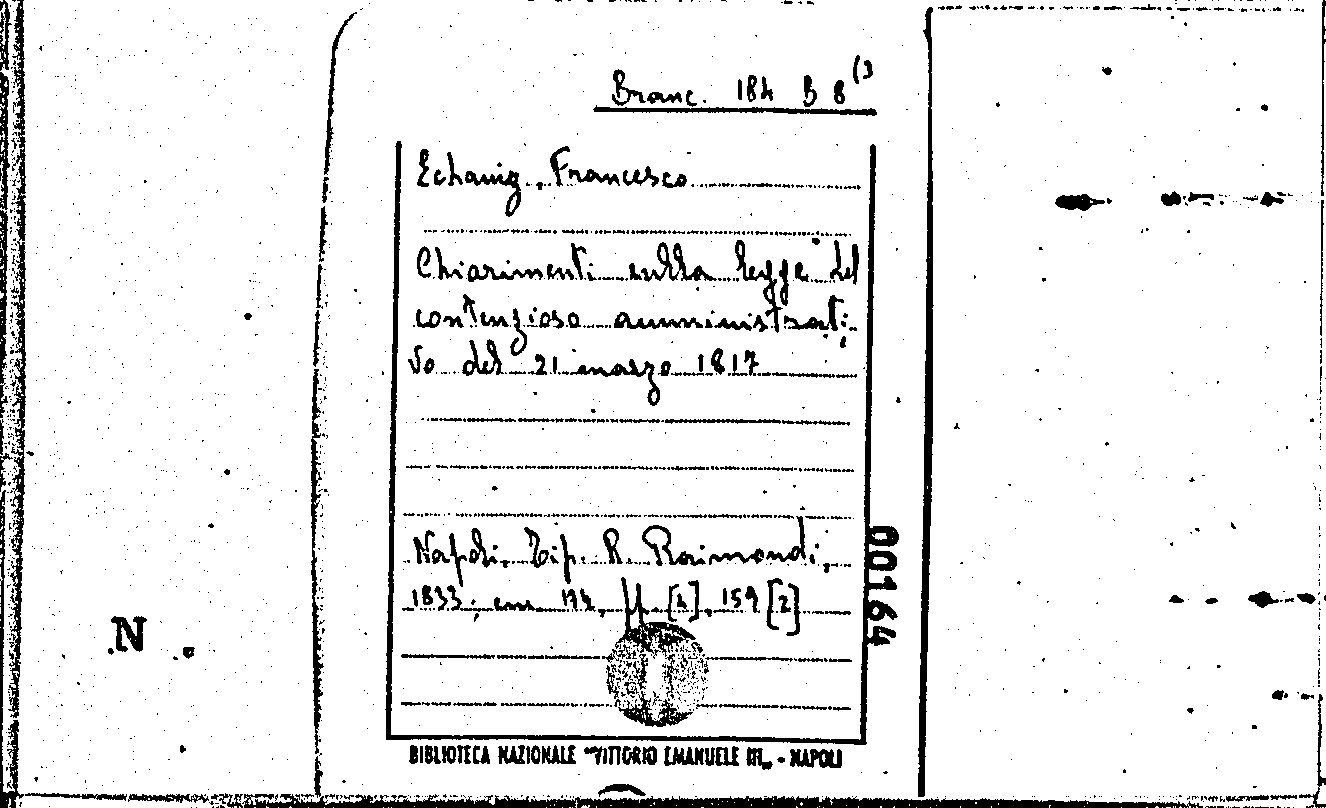 Branc. 184 B 8 (3
Echaniz, Francesco
Chiarimenti sulla legge del
contenzioso amministrati-
vo del 21 marzo 1817
Napoli, Tip. R. Raimondi,
1833; cm. 19½, pp. [4], 159 [2]
00164
N
BIBLIOTECA NAZIONALE "VITTORIO EMANUELE III„ - NAPOLI